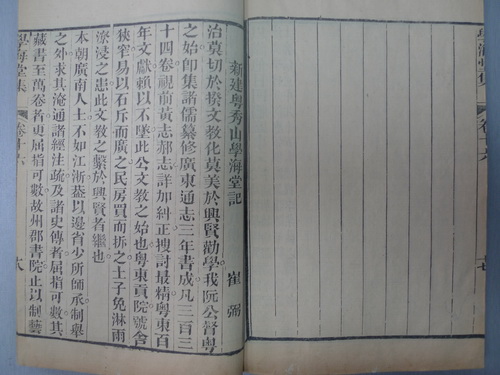 新建粵秀山學海堂記 崔弼
治莫切於揆文教化莫美於興賢勸學我阮公督粵
之始卽集諸儒纂修廣東通志三年書成凡三百三
十四卷視前黃志郝志詳加糾正搜討最精粵東百
年文獻賴以不墜此公文教之始也粵東貢院號舍
狹窄易以石斥而廣之民房買而拆之士子免淋雨
潦浸之患此文教之繫於興賢者繼也
本朝廣南人士不如江浙葢以邊省少所師承制舉
之外求其淹通諸經注疏及諸史傳者屈指可數其
藏書至萬卷者更屈指可數故州郡書院止以制藝
學海堂集 卷十六